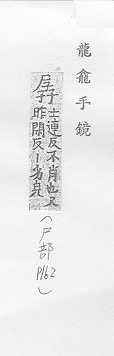 龍龕手鏡
士連反不肖也又
昨閑反丨劣皃
(尸部
P162)